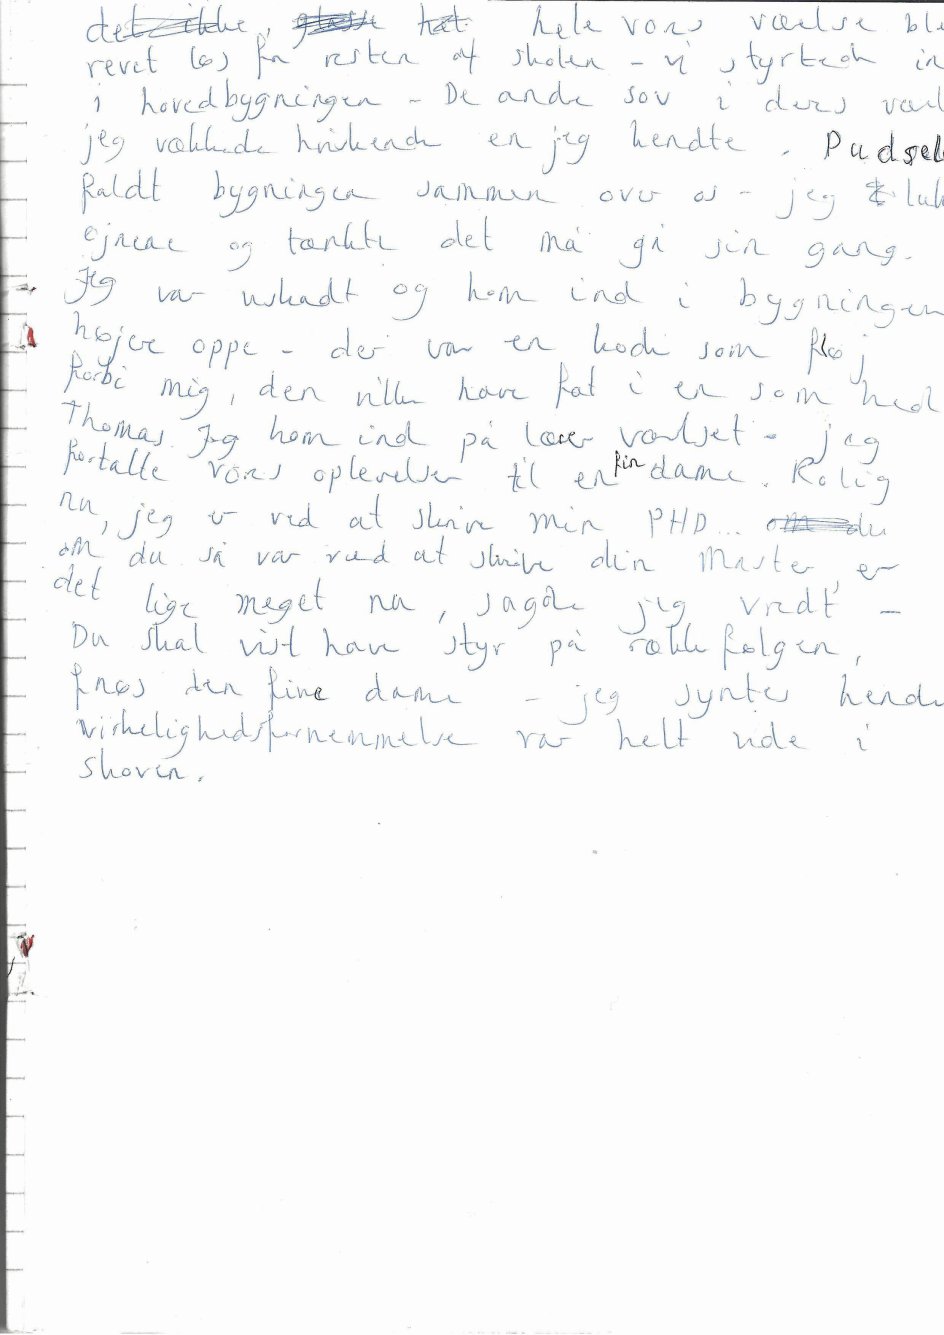 det ikke, hele vores værelse ble
revet løs fra resten af skolen – vi styrtede in
i hovedbygningen – De andre sov i deres vær
jeg vækkede hviskende en jeg kendte. Pudsel
faldt bygningen sammen over os – jeg luk
øjnene og tænkte det må gå sin gang.
Jeg var uskadt og kom ind i bygningen
højere oppe – der var en kode som fløj
forbi mig, den ville have fat i en som hed
Thomas. Jeg kom ind på lærer værelset – jeg
fortalte vores oplevelser til en fin dame. Rolig
nu, jeg er ved at skrive min PHD... du
om du så var ved at skrive din Master, er
det lige meget nu, sagde jeg vredt –
Du skal vist have styr på rækkefølgen,
fnøs den fine dame – jeg syntes hende
virkelighedsfornemmelse var helt ude i
skoven.